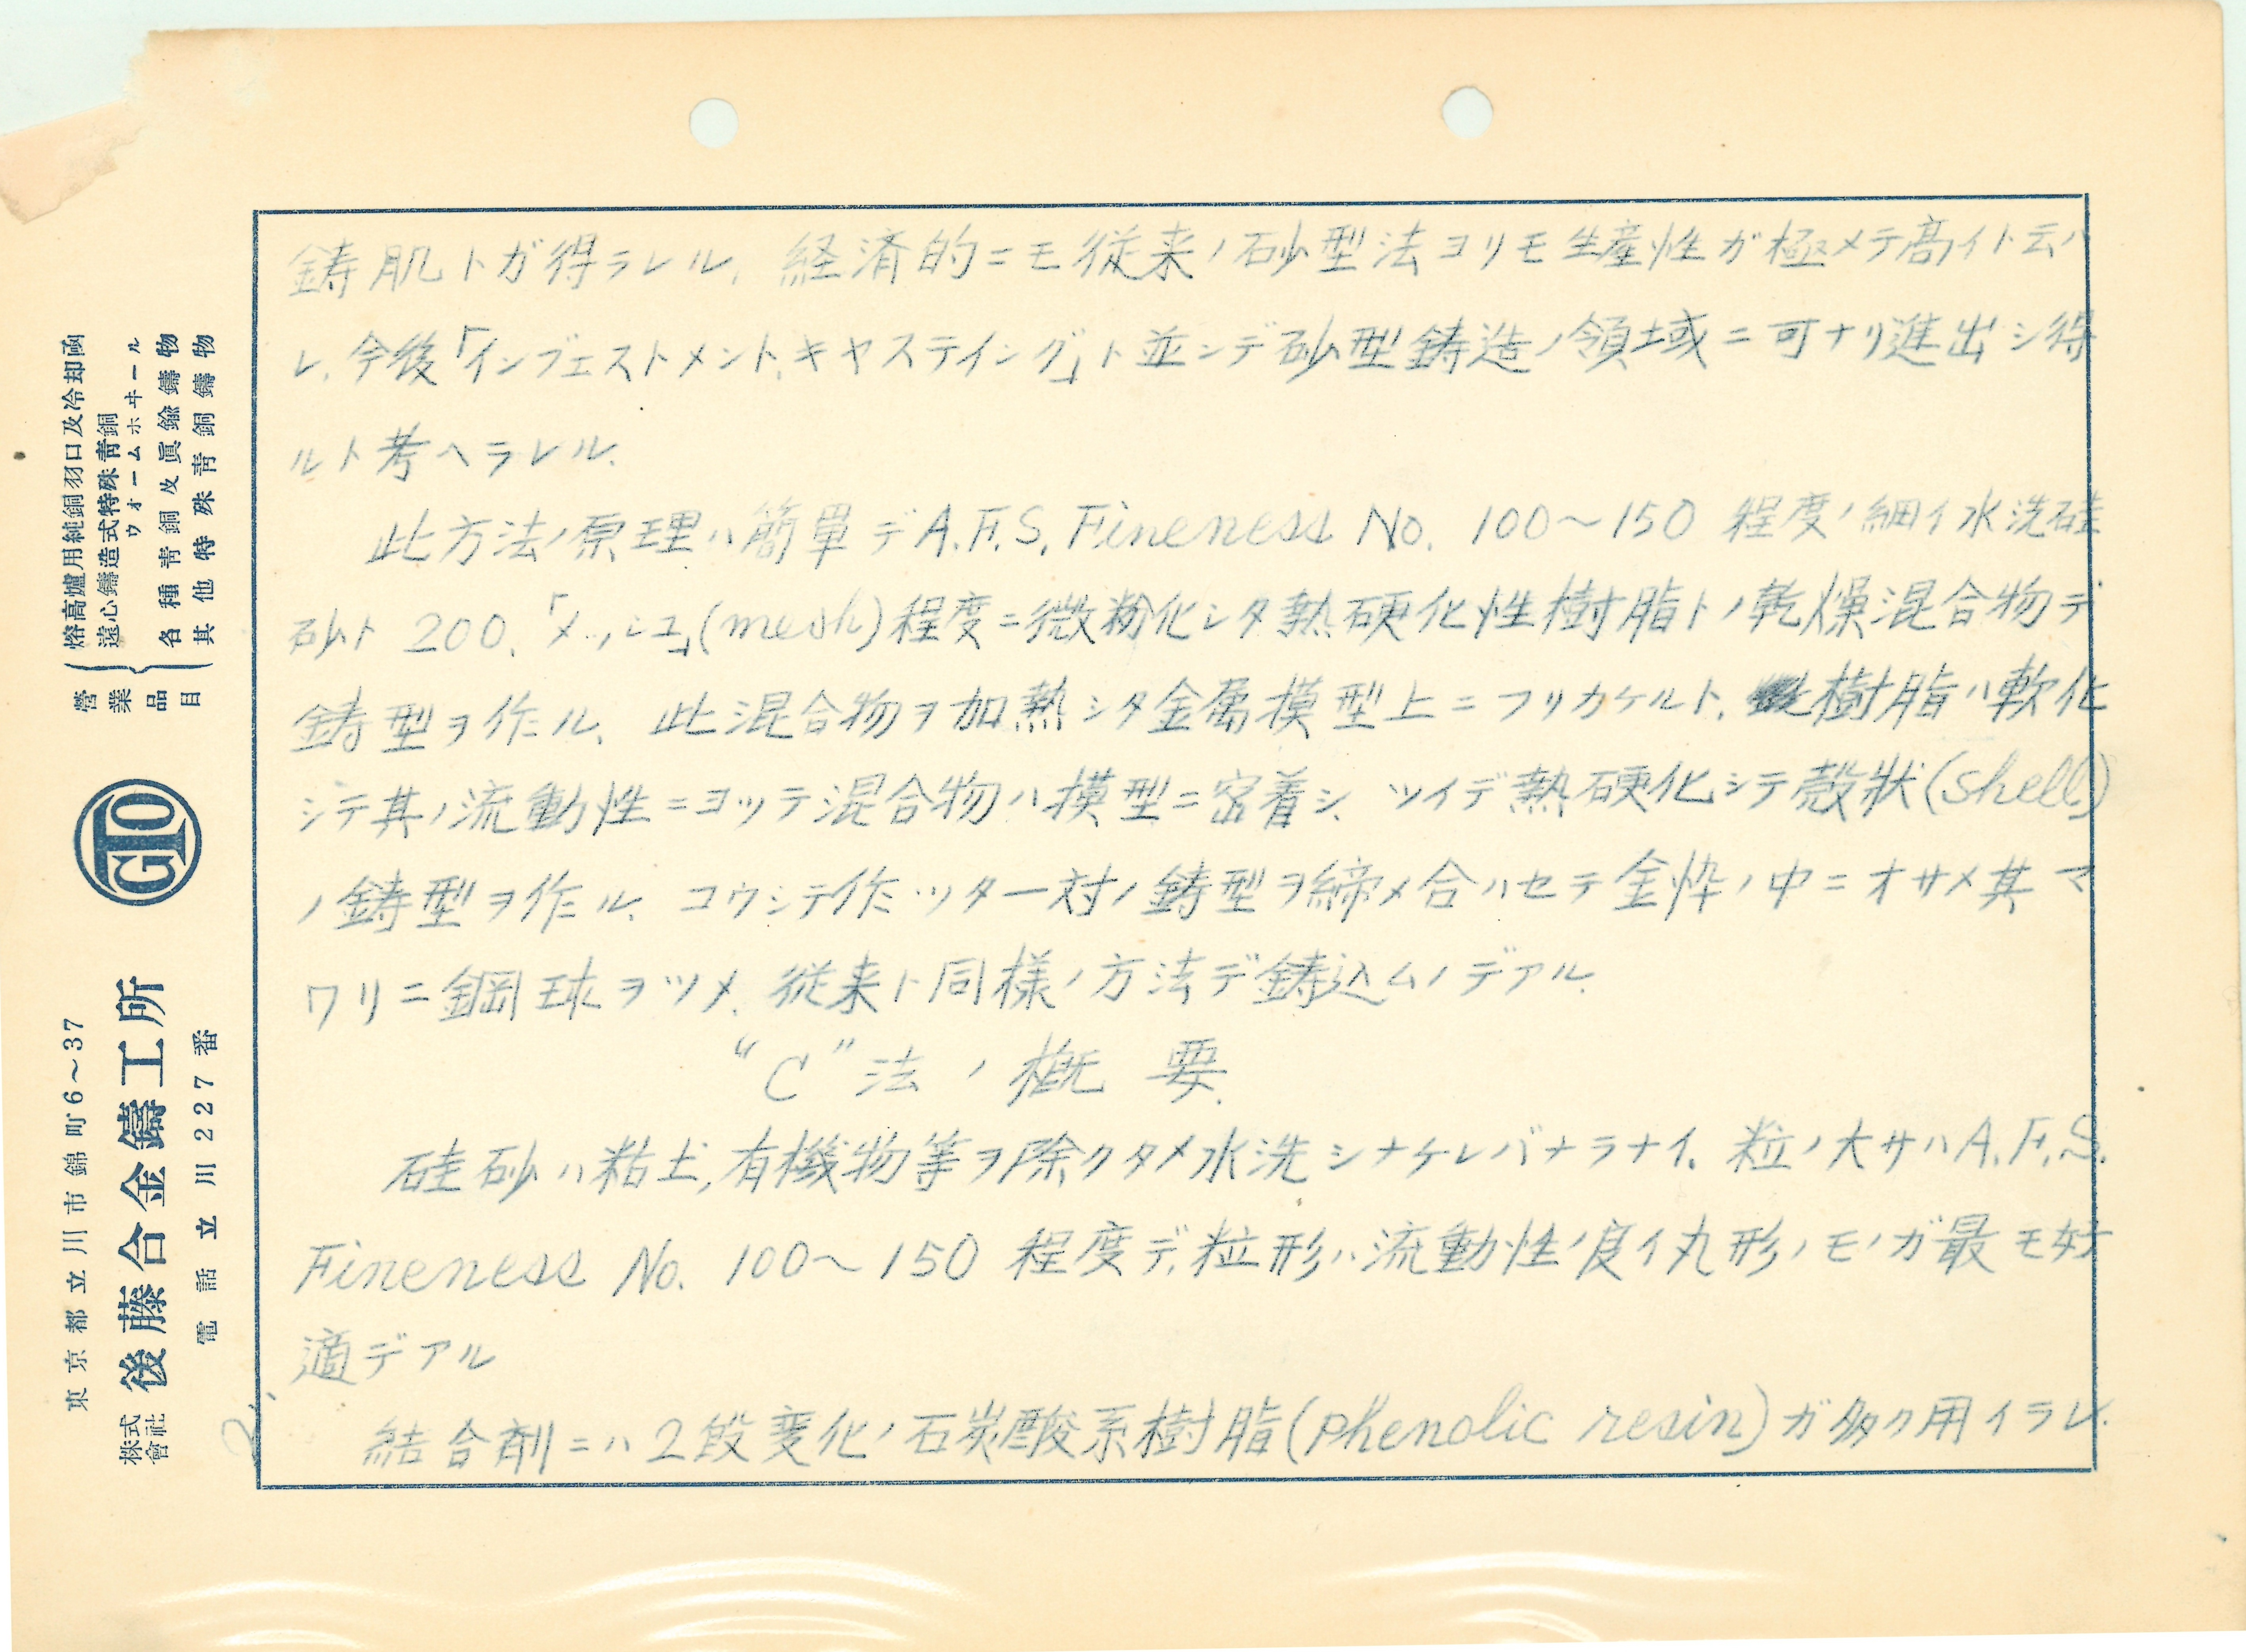 鋳肌トガ得ラレル、経済的ニモ従来ノ砂型法ヨリモ生産性ガ極メテ高イト云ハ
レ、今後「インヴェストメント、キヤステイング」ト並ンデ砂型鋳造ノ領域ニ可ナリ進出シ得
ルト考ヘラレル、
此方法ノ原理ハ簡単デA.F.S. Fineness No. 100～150 程度ノ細イ水洗硅
砂ト 200、「メッシュ」(mesh)程度ニ微粉化シタ熱硬化性樹脂トノ乾燥混合物デ
鋳型ヲ作ル、此混合物ヲ加熱シタ金属模型上ニフリカケルト、樹脂ハ軟化
シテ其ノ流動性ニヨッテ混合物ハ模型ニ密着シ、ツイデ熱硬化シテ殻状(shell)
ノ鋳型ヲ作ル、コウシテ作ッタ一対ノ鋳型ヲ締メ合ハセテ金枠ノ中ニオサメ其マ
ワリニ鋼球ヲツメ、従来ト同様ノ方法デ鋳込ムノデアル、
“C”法ノ概要
硅砂ハ粘土,有機物等ヲ除クタメ水洗シナケレバナラナイ、粒ノ大サハA.F.S.
Fineness No. 100～150 程度デ、粒形ハ流動性ノ良イ丸形ノモノガ最モ好
適デアル
結合剤ニハ2段変化ノ石炭酸系樹脂(phenolic resin)ガ多ク用イラレ、
2、
營業品目
熔高爐用純銅羽口及冷却凾
遠心鑄造式特殊青銅
ウオームホヰール
名種青銅及眞鍮鑄物
其他特殊青銅鑄物
GTO
東京都立川市錦町6～37
株式會社 後藤合金鑄工所
電話立川227番